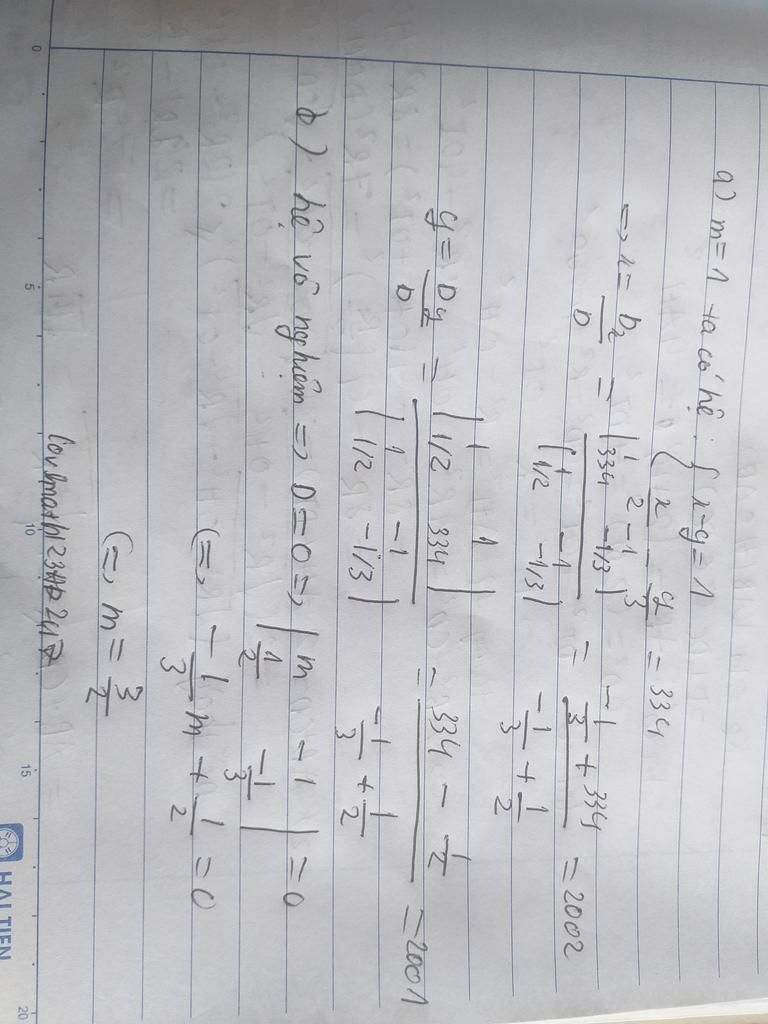 a) m=1 ta có hệ: { x-y=1
x/2 - y/3 = 334
=> x = Dx/D = |1 -1 334 -1/3| / |1 -1 1/2 -1/3| = (-1/3 + 334) / (-1/3 + 1/2) = 2002
y = Dy/D = |1 1 1/2 334| / |1 -1 1/2 -1/3| = (334 - 1/2) / (-1/3 + 1/2) = 2001
b) hệ vô nghiệm => D=0 => |m -1 1/2 -1/3| = 0
<=> -1/3 m + 1/2 = 0
<=> m = 3/2
0 5 10 15 20
HẢI TIẾN